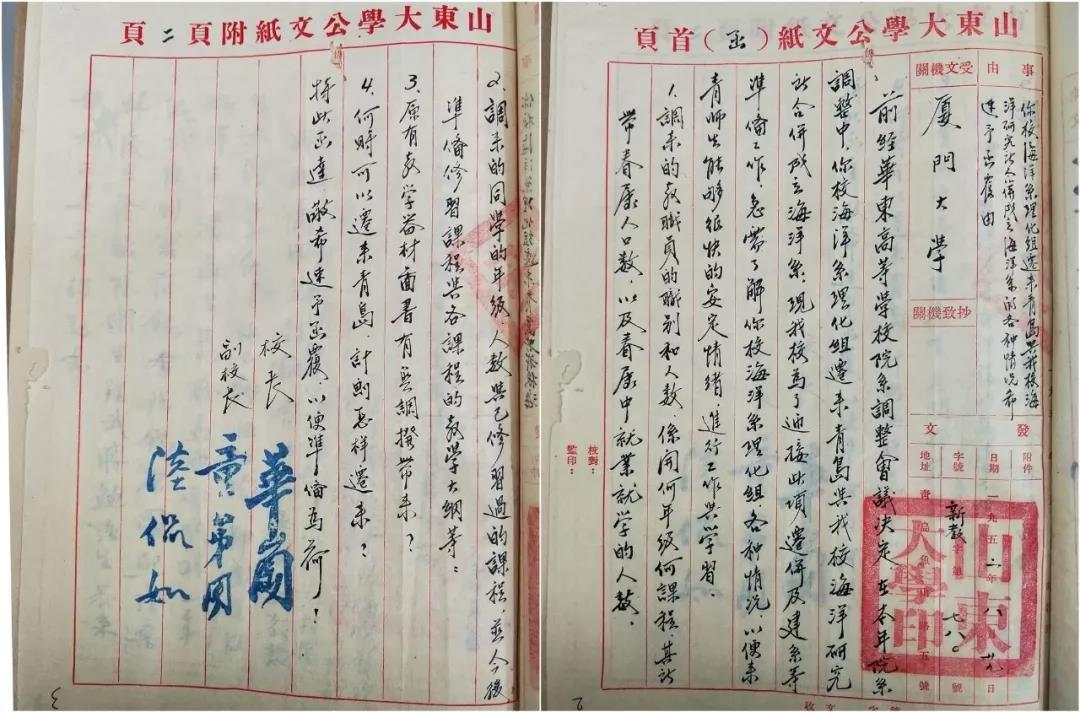 山東大學公文紙（函）首頁
事由
你校海洋系理化組遷来青島與我校海
洋研究所合併成立海洋系的各种情况希
速予函覆由
受文機關
厦門大学
抄致機關
發文
附件
日期 一九五二年八月廿九日
字號 新教字第七八〇號
地址 青島魚山路五號
前經華東高等学校院系調整會議决定，在本年院系
調整中，你校海洋系理化組遷来青島與我校海洋研究
所合併成立海洋系，現我校為了迎接此項遷併及建系等
準备工作，急需了解你校海洋系理化組，各种情况，以便来
青師生能够很快的安定情緒，進行工作與学習．
1、調来的教職員的職别和人數，係開何年級何課程，其所
带眷屬人口數，以及眷屬中就業就学的人數．
校對：
監印：
山東大學印
山東大學公文紙附頁 二頁
2、調来的同学的年級、人数與已修習過的課程，並今後
準备修習課程與各課程的教学大綱等；
3、原有教学器材圖書有無調撥带来？
4、何時可以遷来青島，計劃怎样遷来？
特此函達，敬希速予函覆，以便準备為荷！
校長 華崗
副校長 童第周
陸侃如